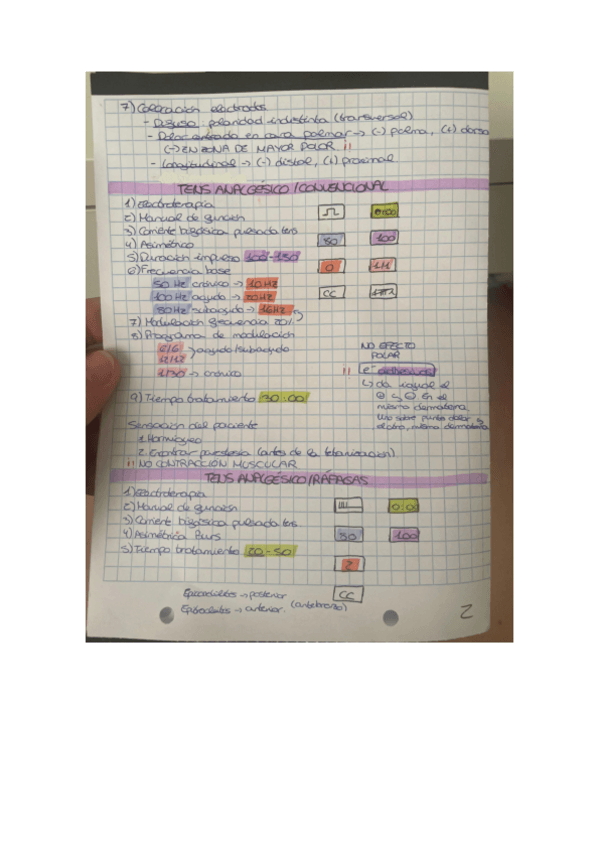 7) Colocación electrodos
- Difuso: polaridad indistinta (transversal)
- Dolor centrado en cara palmar → (-) palma, (+) dorso
(-) EN ZONA DE MAYOR DOLOR !!
- Longitudinal → (-) distal, (+) proximal
TENS ANALGÉSICO / CONVENCIONAL
1) Electroterapia
2) Manual de función
3) Corriente bifásica pulsada tens
4) Asimétrico
5) Duración impulso 100-150
6) Frecuencia base
50 Hz crónico → 10Hz
100Hz agudo → 20Hz
80Hz subagudo → 16Hz
7) Modulación frecuencia 20%
8) Programa de modulación
6/6
12/12 → agudo/subagudo
1/30 → crónico
9) Tiempo tratamiento 30:00
0:00
80 100
0 1/1
CC
NO EFECTO
POLAR
!! e- adhesivos
↳ da igual el
⊕ y ⊖ en el
mismo dermatoma.
Uno sobre punto dolor y
el otro, mismo dermatoma
Sensación del paciente
1. Hormigueo
2. Encontrar parestesia (antes de la tetanización)
!! NO CONTRACCIÓN MUSCULAR
TENS ANALGÉSICO / RÁFAGAS
1) Electroterapia
2) Manual de función
3) Corriente bifásica pulsada tens
4) Asimétrica Burs
5) Tiempo tratamiento 20-50
0:00
80 100
2
CC
Epicondilitis → posterior
Epitrocleitis → anterior. (antebrazo)
2